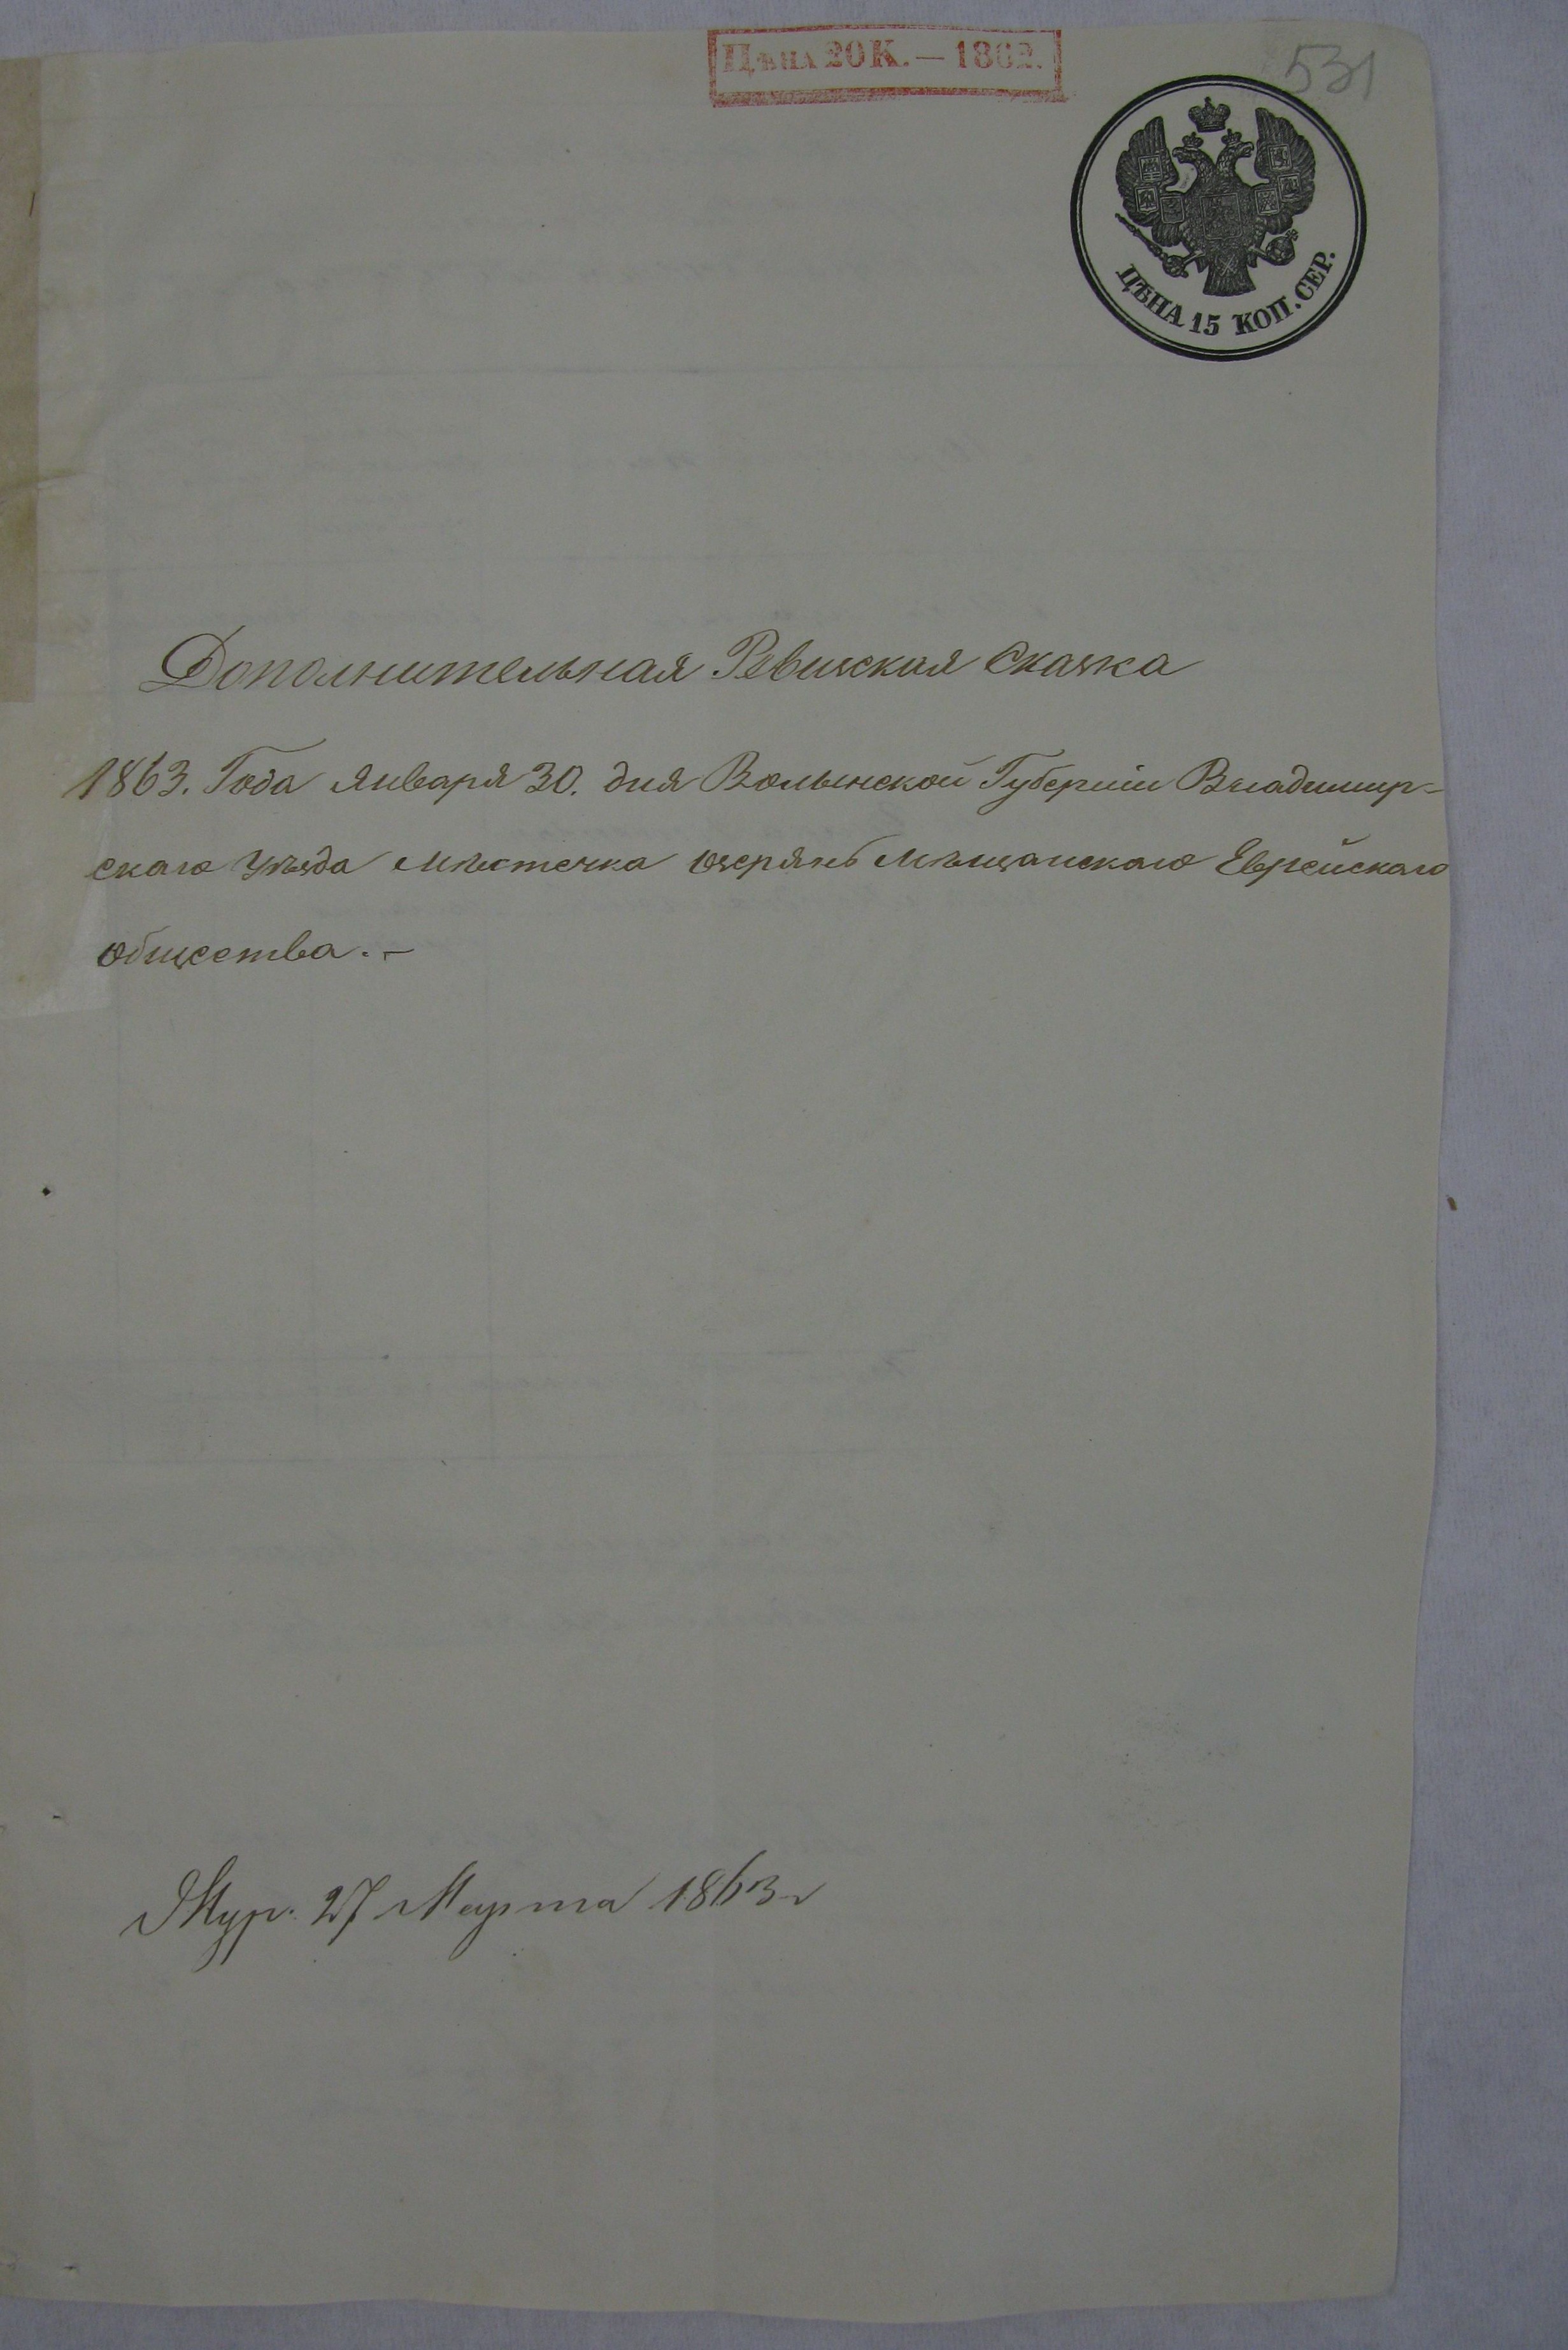 Цѣна 20 К. — 1862.
531
ЦѢНА 15 КОП. СЕР.
Дополнительная Ревизская Сказка
1863. Года Января 30. дня Волынской Губерніи Владимир-
скаго Уѣзда Мѣстечка Озерянъ Мѣщанскаго Еврейскаго
Общества. –
27 Марта 1863 г